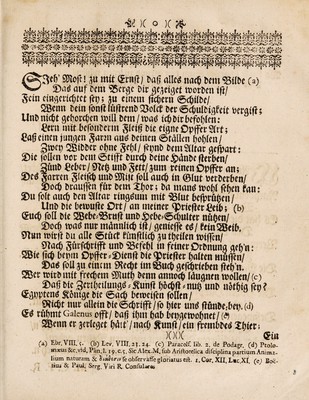 )( o )(
Sieh' Mose! zu mit Ernst/ daß alles nach dem Bilde (a)
Das auf dem Berge dir gezeiget worden ist/
Fein eingerichtet sey; zu einem sichern Schilde/
Wenn dein sonst lüstrend Volck der Schuldigkeit vergist;
Und nicht gehorchen will dem/ was ich dir befohlen:
Lern mit besonderm Fleiß die eigne Opffer Art;
Laß einen jungen Farrn aus deinen Ställen hohlen/
Zwey Widder ohne Fehl/ seynd dem Altar gespart:
Die sollen vor dem Stifft durch deine Hände sterben/
Zünd Leber/ Netz und Fett/ zum reinen Opffer an;
Des Farren Fleisch und Mist soll auch in Glut verderben/
Doch draussen für dem Thor; da mans wohl sehen kan:
Du solt auch den Altar ringsum mit Blut besprützen/
Und die bewuste Ort/ an meiner Priester Leib; (b)
Euch soll die Webe-Brust und Hebe-Schulter nützen/
Doch was nur männlich ist/ geniesse es/ kein Weib.
Nun wirst du alle Stück künstlich zu theilen wissen/
Nach Fürschrifft und Befehl in seiner Ordnung geh'n:
Wie sich beym Opffer-Dienst die Priester halten müssen/
Das soll zu einem Recht im Buch geschrieben steh'n.
Wer wird mit frechem Muth denn annoch läugnen wollen/ (c)
Daß die Zertheilungs-Kunst höchst-nutz und nöthig sey?
Egyptens Könige dir Sach beweisen sollen/
Nicht nur allein die Schrifft/ so hier uns stünde bey. (d)
Es rühmt Galenus offt/ daß ihm hab beygewohnet/ (e)
Wenn er zerleget hätt'/ nach Kunst/ ein frembdes Thier:
)()()( Ein
(a) Ebr. VIII, 5. (b) Lev. VIII. 23. 24. (c) Paracels. lib. 2. de Podagr. (d) Ptolo-
mæus &c. vid. Plin. l. 19. c. 5. Sic Alex. M. sub Aristotelica disciplina partium Anima-
lium naturam & observasse gloriatus est. 1. Cor. XII, Luc. XI. (e) Boë-
tius & Paul; Serg. Viri R. Consulares.